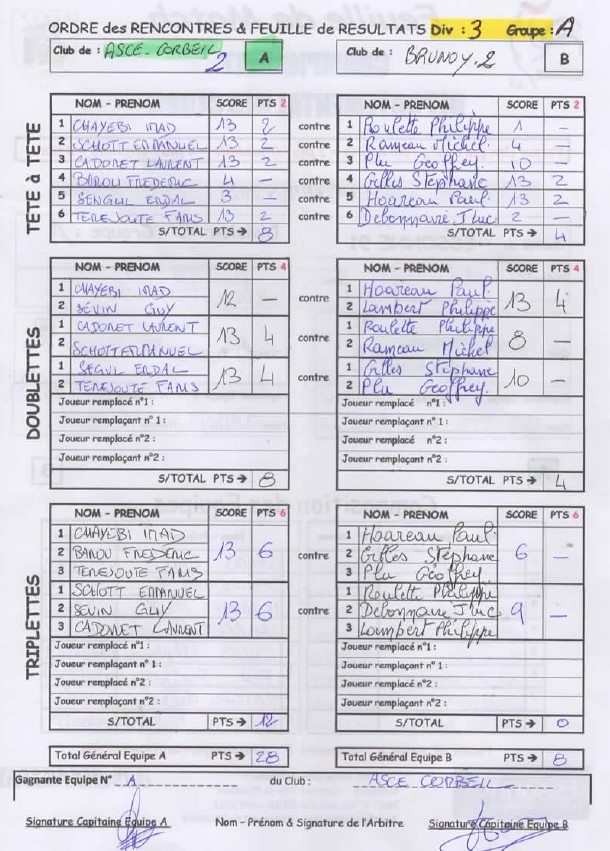 ORDRE des RENCONTRES & FEUILLE de RESULTATS Div : 3 Groupe : A
Club de : ASCE. CORBEIL 2 A Club de : BRUNOY.2 B
TÊTE à TÊTE
NOM - PRENOM SCORE PTS 2 NOM - PRENOM SCORE PTS 2
1 CHAYEBI IMAD 13 2 contre 1 Roulette Philippe 1 —
2 SCHOTT EMMANUEL 13 2 contre 2 Rameau Michel. 4 —
3 CADORET LAURENT 13 2 contre 3 Plu Geoffrey. 10 —
4 BAROU FREDERIC 4 — contre 4 Gilles Stéphane 13 2
5 SENGUL ERDAL 3 — contre 5 Hoareau Paul. 13 2
6 TENEJOUTE FARIS 13 2 contre 6 Debonnaire J luc 2 —
S/TOTAL PTS → 8 S/TOTAL PTS → 4
DOUBLETTES
NOM - PRENOM SCORE PTS 4 NOM - PRENOM SCORE PTS 4
1 CHAYEBI IMAD 12 — contre 1 Hoareau Paul. 13 4
2 SEVIN GUY 2 Lambert Philippe
1 CADORET LAURENT 13 4 contre 1 Roulette Philippe 8 —
2 SCHOTT EMMANUEL 2 Rameau Michel
1 SEGUL ERDAL 13 4 contre 1 Gilles Stéphane 10 —
2 TENEJOUTE FARIS 2 Plu Geoffrey.
Joueur remplacé n°1 : Joueur remplacé n°1 :
Joueur remplaçant n° 1 : Joueur remplaçant n° 1 :
Joueur remplacé n°2 : Joueur remplacé n°2 :
Joueur remplaçant n°2 : Joueur remplaçant n°2 :
S/TOTAL PTS → 8 S/TOTAL PTS → 4
TRIPLETTES
NOM - PRENOM SCORE PTS 6 NOM - PRENOM SCORE PTS 6
1 CHAYEBI IMAD 1 Hoareau Paul.
2 BAROU FREDERIC 13 6 contre 2 Gilles Stéphane 6 —
3 TENEJOUTE FARIS 3 Plu Geoffrey.
1 SCHOTT EMMANUEL 1 Roulette Philippe
2 SEVIN GUY 13 6 contre 2 Debonnaire J luc 9 —
3 CADORET LAURENT 3 Lambert Philippe
Joueur remplacé n°1 : Joueur remplacé n°1 :
Joueur remplaçant n° 1 : Joueur remplaçant n° 1 :
Joueur remplacé n°2 : Joueur remplacé n°2 :
Joueur remplaçant n°2 : Joueur remplaçant n°2 :
S/TOTAL PTS → 12 S/TOTAL PTS → 0
Total Général Equipe A PTS → 28 Total Général Equipe B PTS → 8
Gagnante Equipe N° A du Club : ASCE CORBEIL
Signature Capitaine Equipe A Nom - Prénom & Signature de l'Arbitre Signature Capitaine Equipe B